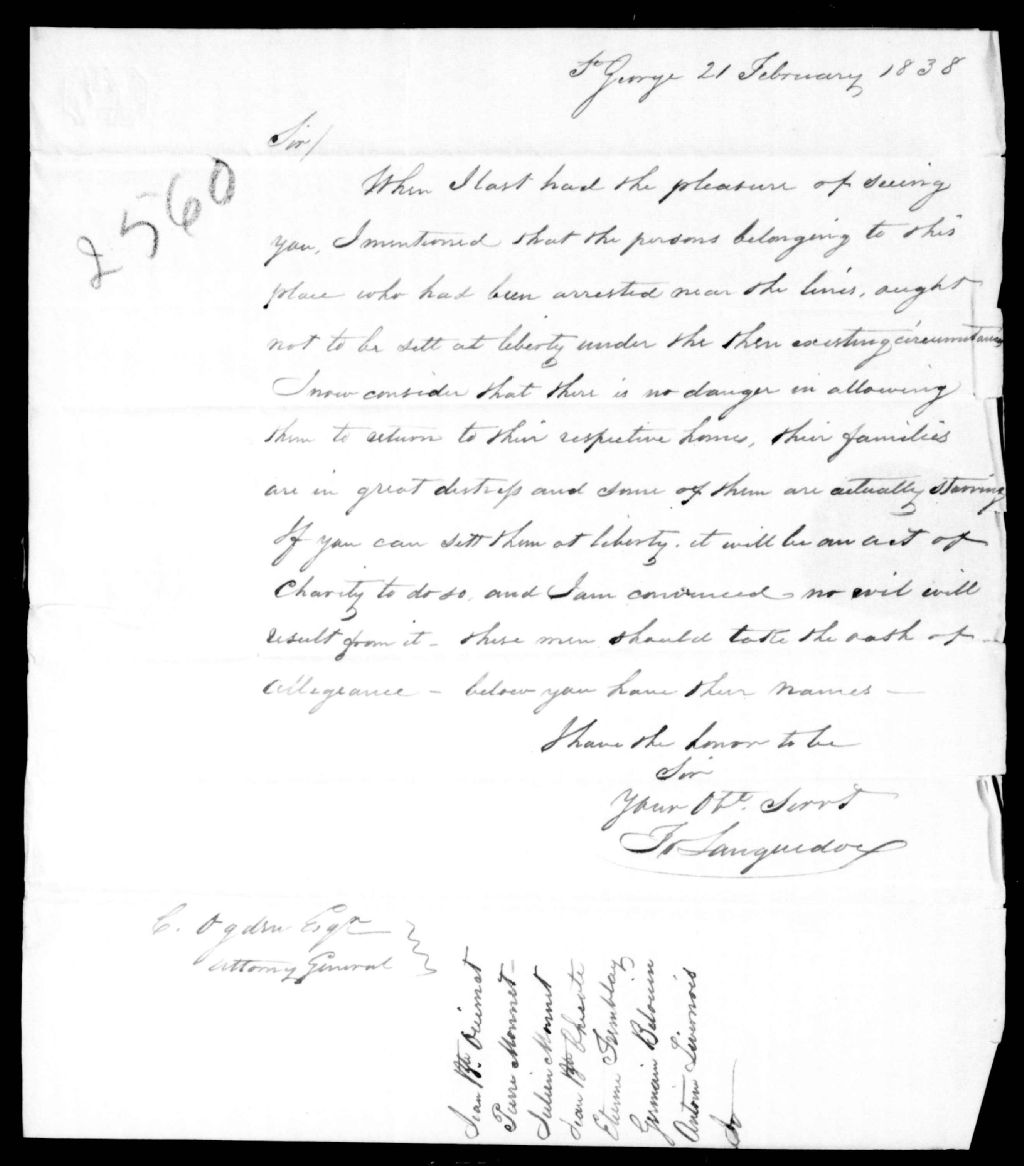 St George 21 February 1838
Sir/
2560
When I last had the pleasure of seeing
you, I mentioned that the persons belonging to this
place who had been arrested near the lines, aught
not to be sett at liberty under the then existing circumstances
I now consider that there is no danger in allowing
them to return to their respective homes, their families
are in great distress and some of them are actually starving
If you can sett them at liberty. it will be an act of
Charity to do so, and I am convinced no evil will
result from it - these men should take the oath of
allegeance - below you have their names -
I have the honor to be
Sir
Your Obt. Servt
Languedoc
C. Ogden Esqr
Attorny General
Jean Bte
Pierre Monnet
Julien Monnet
Jean Bte
Etienne Tremblay
Germain Belouin
Antoin Livernois